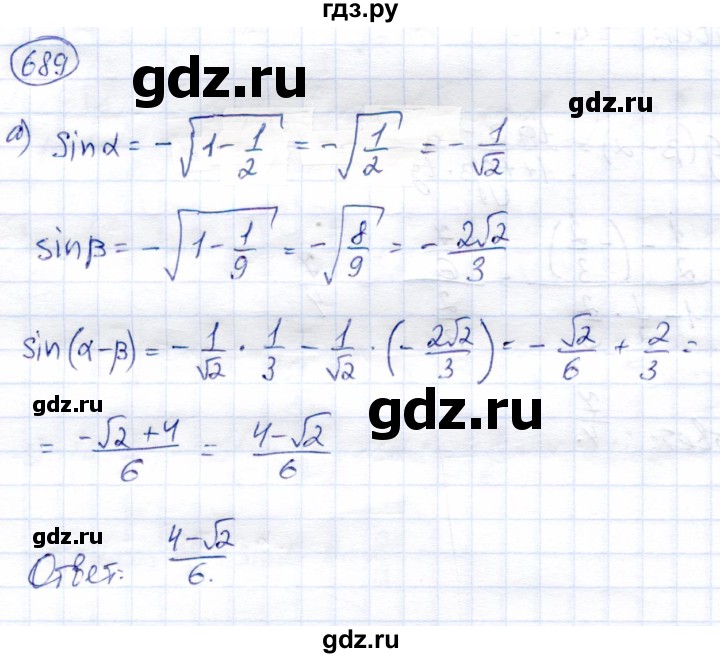 гдз.ру
689
gdz.ru
а) sinα = -√(1 - 1/2) = -√(1/2) = - 1/√2
sinβ = -√(1 - 1/9) = -√(8/9) = - 2√2/3
sin(α-β) = - 1/√2 · 1/3 - 1/√2 · (- 2√2/3) = - √2/6 + 2/3 =
gdz.ru
gdz.ru
= (-√2+4)/6 = (4-√2)/6
gdz.ru
Ответ: (4-√2)/6.
gdz.ru